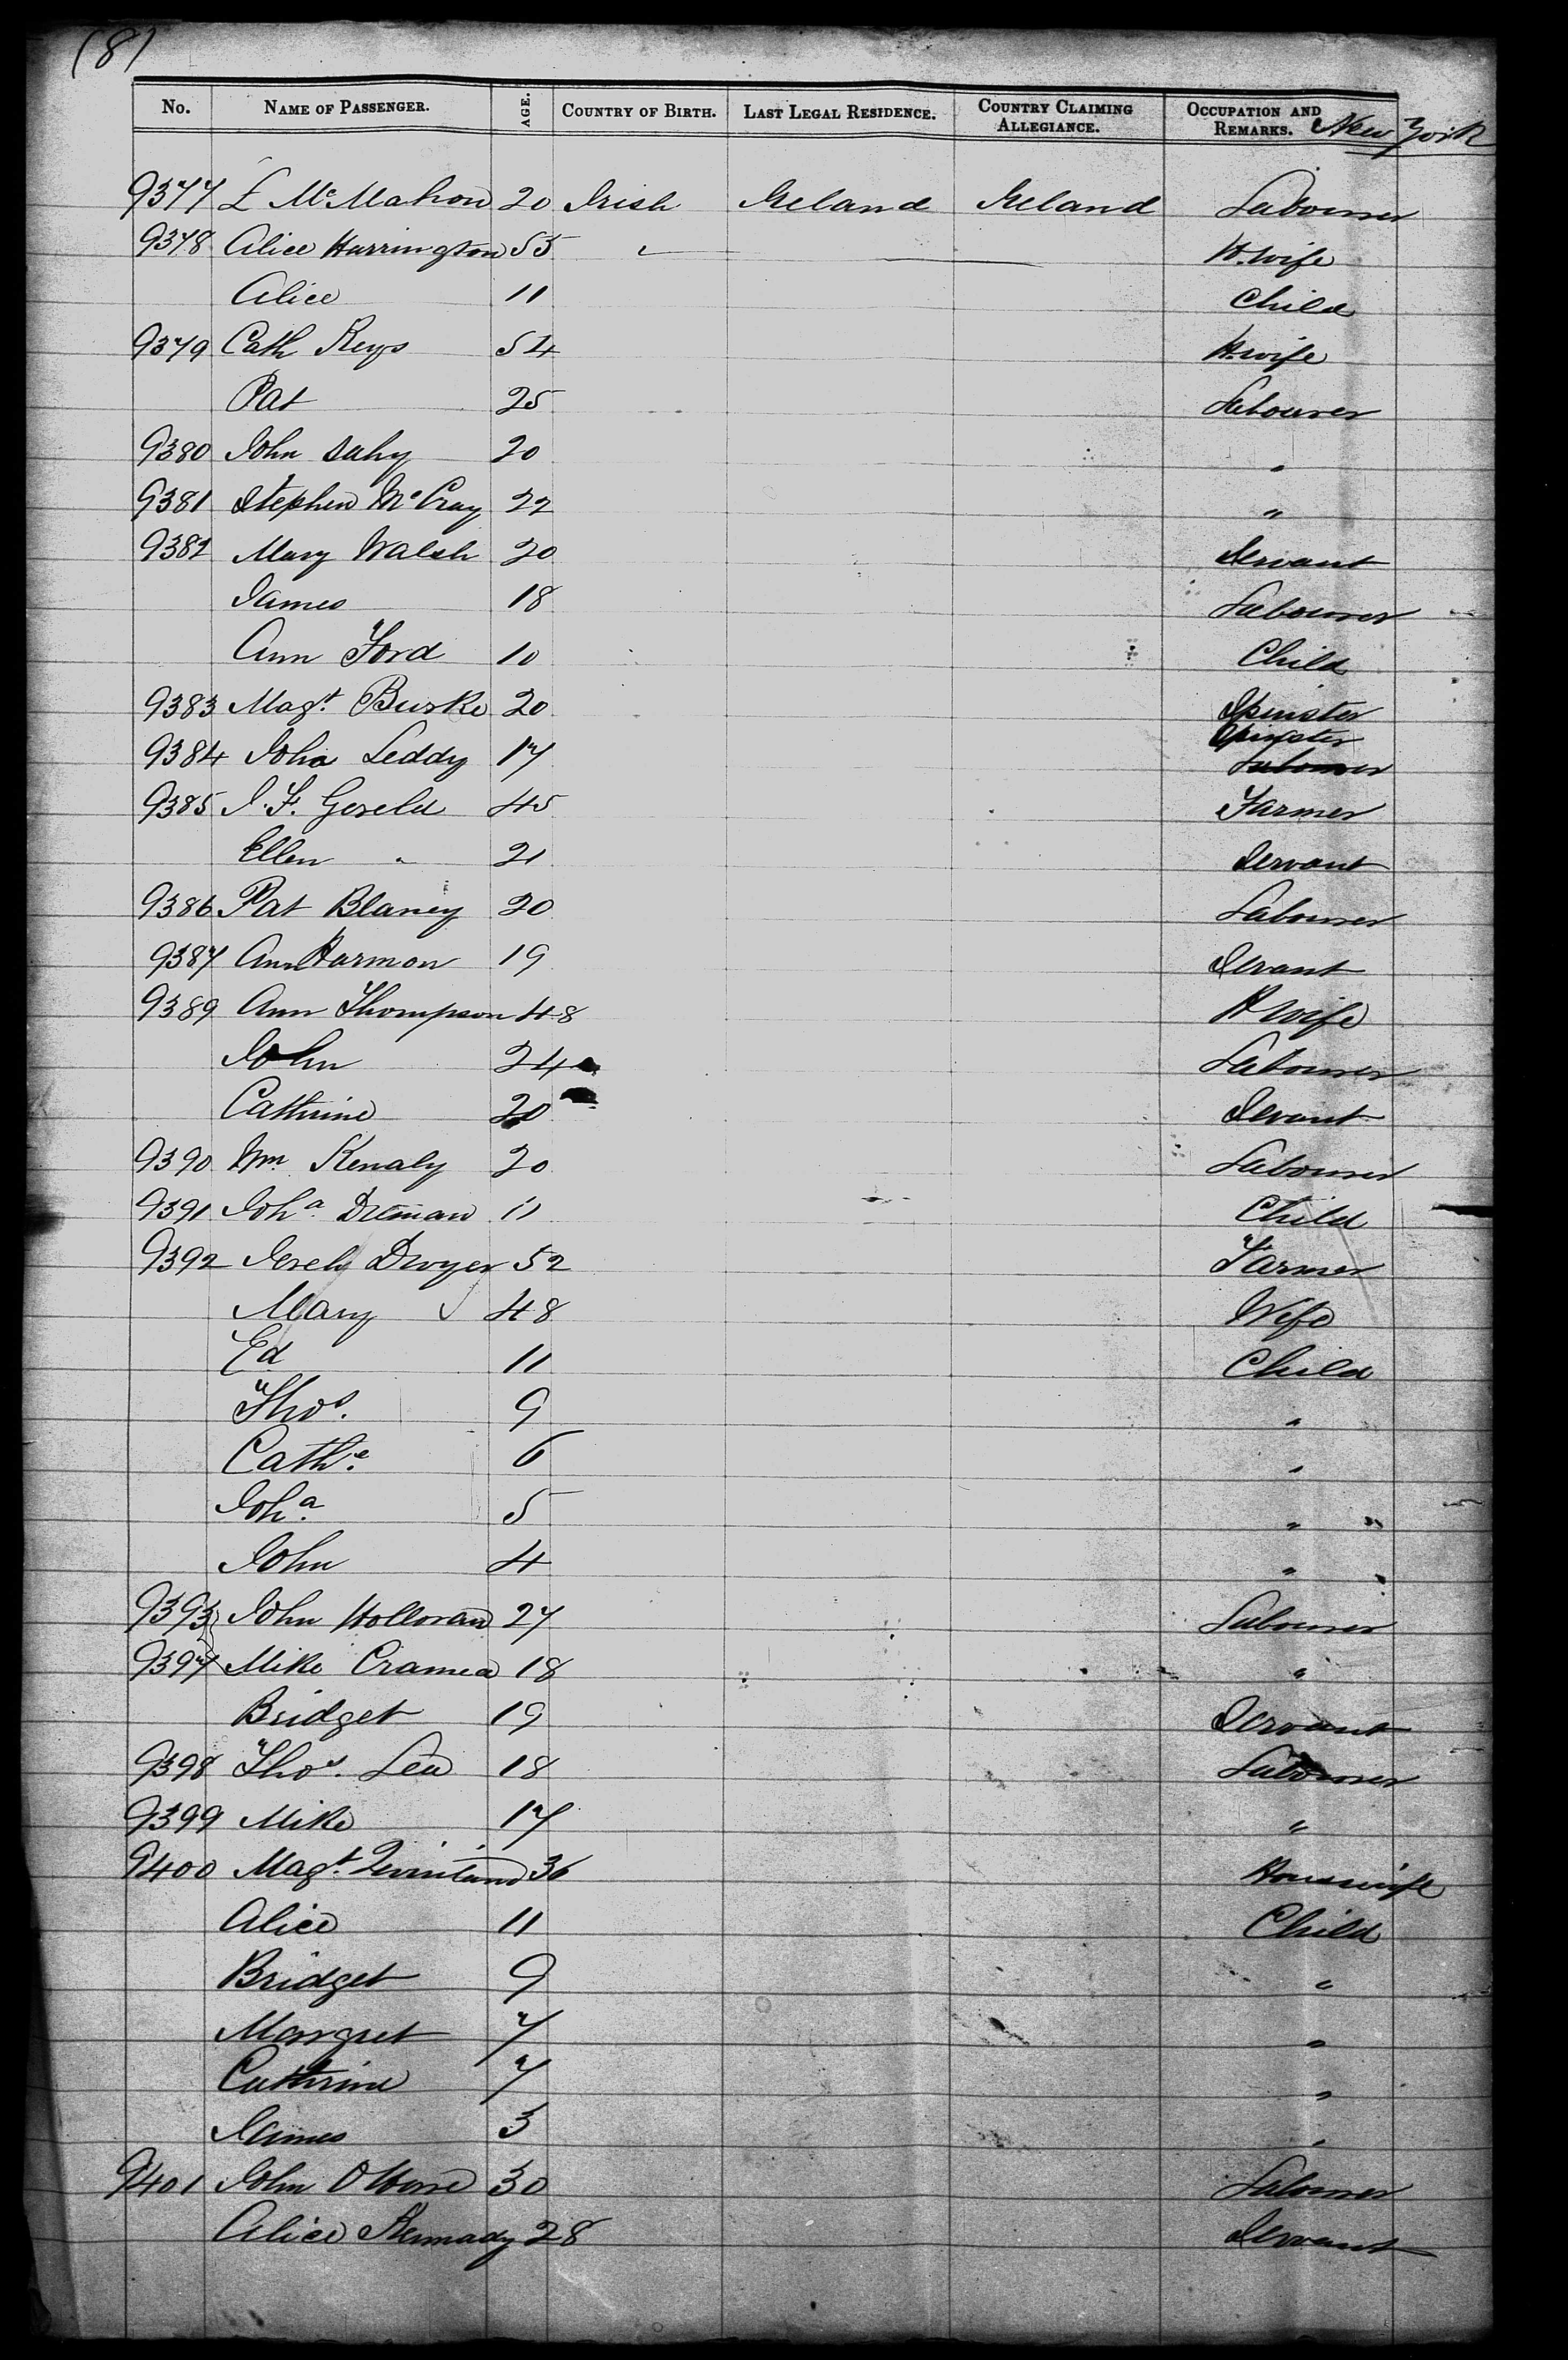 (8)
No. NAME OF PASSENGER. AGE. COUNTRY OF BIRTH. LAST LEGAL RESIDENCE. COUNTRY CLAIMING ALLEGIANCE. OCCUPATION AND REMARKS. New York
9377 L McMahon 20 Irish Ireland Ireland Labourer
9378 Alice Harrington 55 H.wife
Alice 11 Child
9379 Cath Keys 54 H.wife
Pat 25 Labourer
9380 John Dahy 20 "
9381 Stephen McCray 22 "
9382 Mary Walsh 20 Servant
James 18 Labourer
Ann Ford 10 Child
9383 Magt. Burke 20 Spinster
9384 Joha Leddy 17 Spinster Labourer
9385 J. F. Gereld 45 Farmer
Ellen " 21 Servant
9386 Pat Blaney 20 Labourer
9387 Ann Harmon 19 Servant
9389 Ann Thompson 48 H wife
John 24 Labourer
Cathrine 20 Servant
9390 Wm. Kenaly 20 Labourer
9391 Joha. 11 Child
9392 Jereh Dwyer 52 Farmer
Mary 48 Wife
Ed 11 Child
Thos. 9 "
Cathe. 6 "
Joha. 5 "
John 4 "
9393 John Holloran 27 Labourer
9397 Mike Cramea 18 "
Bridget 19 Servant
9398 Thos. Lea 18 Labourer
9399 Mike 17 "
9400 Magt. 36 Housewife
Alice 11 Child
Bridget 9 "
Margret 7 "
Cathrine 7 "
James 3 "
9401 John 30 Labourer
Alice Kennady 28 Servant